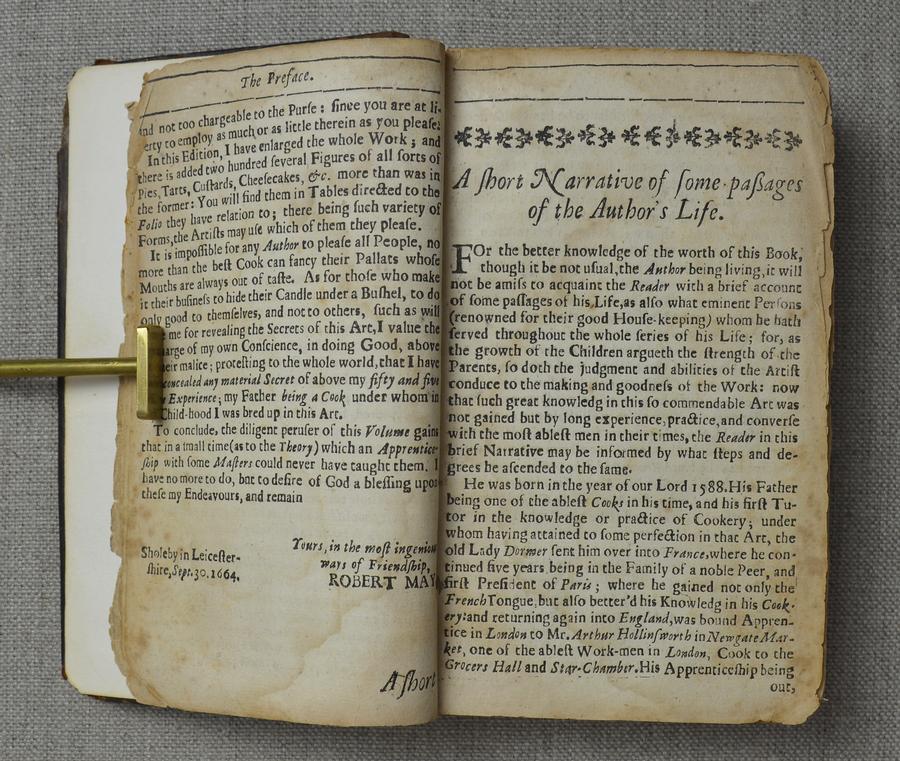 The Preface.
and not too chargeable to the Purſe : ſince you are at li-
erty to employ as much or as little therein as you pleaſe.
In this Edition, I have enlarged the whole Work ; and
there is added two hundred ſeveral Figures of all ſorts of
Pies, Tarts, Cuſtards, Cheeſecakes, &c. more than was in
the former: You will find them in Tables directed to the
Folio they have relation to ; there being ſuch variety of
Forms, the Artiſts may uſe which of them they pleaſe.
It is impoſſible for any Author to pleaſe all People, no
more than the beſt Cook can fancy their Pallats whoſe
Mouths are always out of taſte. As for thoſe who make
it their buſineſs to hide their Candle under a Buſhel, to do
only good to themſelves, and not to others, ſuch as will
me for revealing the Secrets of this Art, I value the
arge of my own Conſcience, in doing Good, above
eir malice ; proteſting to the whole world, that I have
concealed any material Secret of above my fifty and five
Experience ; my Father being a Cook under whom in
Child-hood I was bred up in this Art.
To conclude, the diligent peruſer of this Volume gains
that in a ſmall time (as to the Theory) which an Apprentice-
ſhip with ſome Maſters could never have taught them. I
have no more to do, but to deſire of God a bleſſing upon
theſe my Endeavours, and remain
Yours, in the moſt ingenious
ways of Friendſhip,
Sholeby in Leiceſter-
ſhire, Sept. 30. 1664.
ROBERT MAY
A ſhort
A ſhort Narrative of ſome paßages
of the Author's Life.
FOr the better knowledge of the worth of this Book,
though it be not uſual, the Author being living, it will
not be amiſs to acquaint the Reader with a brief account
of ſome paſſages of his Life, as alſo what eminent Perſons
(renowned for their good Houſe-keeping) whom he hath
ſerved throughout the whole ſeries of his Life ; for, as
the growth of the Children argueth the ſtrength of the
Parents, ſo doth the judgment and abilities of the Artiſt
conduce to the making and goodneſs of the Work: now
that ſuch great knowledg in this ſo commendable Art was
not gained but by long experience, practice, and converſe
with the moſt ableſt men in their times, the Reader in this
brief Narrative may be informed by what ſteps and de-
grees he aſcended to the ſame.
He was born in the year of our Lord 1588. His Father
being one of the ableſt Cooks in his time, and his firſt Tu-
tor in the knowledge or practice of Cookery ; under
whom having attained to ſome perfection in that Art, the
old Lady Dormer ſent him over into France, where he con-
tinued five years being in the Family of a noble Peer, and
firſt Preſident of Paris ; where he gained not only the
French Tongue, but alſo better'd his Knowledg in his Cook-
ery: and returning again into England, was bound Appren-
tice in London to Mr. Arthur Hollinſworth in Newgate Mar-
ket, one of the ableſt Work-men in London, Cook to the
Grocers Hall and Star-Chamber. His Apprenticeſhip being
out,